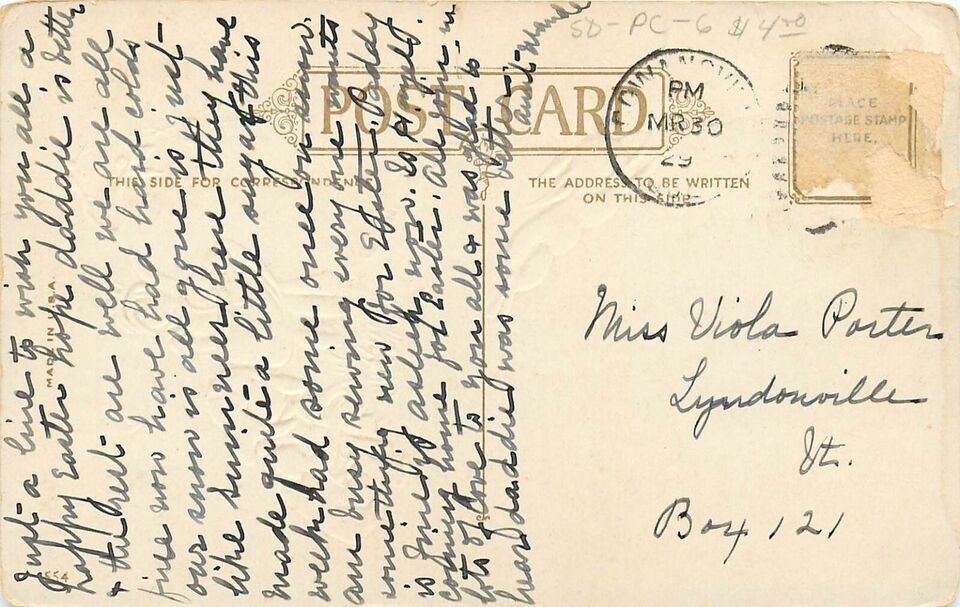 58-PC-6 $4.00
POST CARD
THIS SIDE FOR CORRESPONDENCE
THE ADDRESS TO BE WRITTEN
ON THIS SIDE
PLACE
POSTAGE STAMP
HERE.
PM
MR 30
29
MADE IN U.S.A.
554
Just a line to wish you all a
happy Easter hope daddie is better
& the rest are well we are all
fine now have had hard colds
our snow is all gone is just
like summer here they have
made quite a little sugar this
week had some one my own
am busy sewing every one wants
something new for Easter. Paddy
is fine, asleep now. Is
coming home for Easter. all join in
lots of love to you all & was glad to
hear daddie was some better. aunt Maude
Miss Viola Porter
Lyndonville
Vt.
Box 121